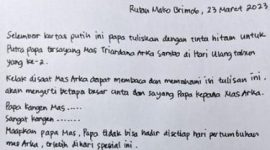 Rutan Mako Brimob, 23 Maret 2023
Selembar kertas putih ini papa tuliskan dengan tinta hitam untuk
Putra papa tersayang Mas Triardana Arka Sambo di Hari Ulang tahun
yang ke-2.
Kelak disaat Mas Arka dapat membaca dan memahami isi tulisan ini.
akan mengerti betapa besar cinta dan sayang Papa kepada Mas Arka.
Papa kangen Mas.....
Sangat kangen ......
Maafkan papa Mas, Papa tidak bisa hadir disetiap hari pertumbuhan
mas Arka, di hari spesial ini.